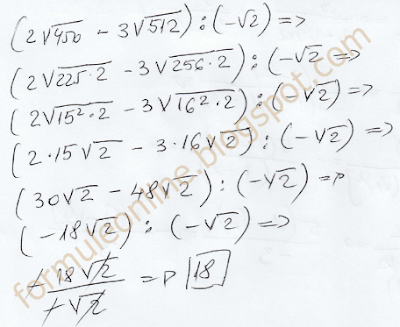 (2√450 - 3√512) : (-√2) =>
(2√225·2 - 3√256·2) : (-√2 =>
(2√15²·2 - 3√16²·2) : (-√2) =>
(2·15√2 - 3·16√2) : (-√2) =>
(30√2 - 48√2) : (-√2) =>
(-18√2) : (-√2) =>
-18√2 / -√2 => 18
formuleonline.blogspot.com